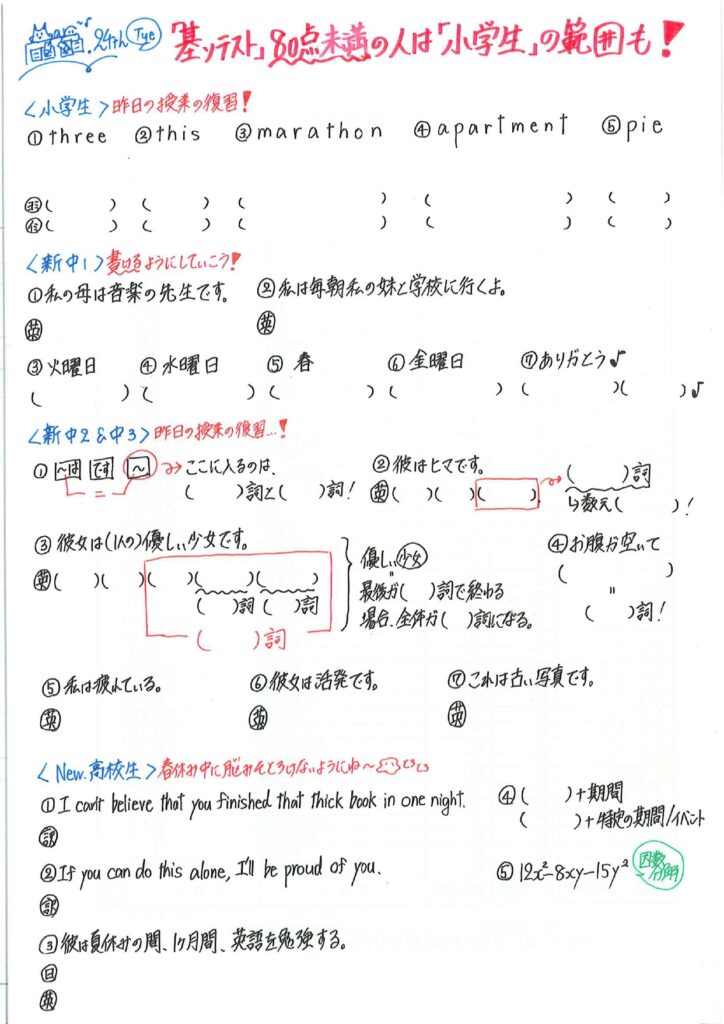 24th Tye 「基ソテスト」80点未満の人は「小学生」の範囲も!
<小学生>昨日の授業の復習!
①three ②this ③marathon ④apartment ⑤pie
( ) ( ) ( ) ( ) ( )
( ) ( ) ( ) ( ) ( )
<新中1>書けるようにしていこう!
①私の母は音楽の先生です。 ②私は毎朝私の妹と学校に行くよ。
英 英
③火曜日 ④水曜日 ⑤春 ⑥金曜日 ⑦ありがとう♪
( ) ( ) ( ) ( ) ( )( )♪
<新中2&中3>昨日の授業の復習…!
①~は です ~ → ここに入るのは、
=
( )詞と( )詞!
②彼はヒマです。
英( )( )( ) → ( )詞
↳数え( )!
③彼女は(1人の)優しい少女です。
英( )( )( )( )( )
( )詞 ( )詞
( )詞
優しい少女
"
最後が( )詞で終わる
場合、全体が( )詞になる。
④お腹が空いて
( )
"
( )詞!
⑤私は疲れている。 ⑥彼女は活発です。 ⑦これは古い写真です。
英 英 英
<New.高校生>春休み中に脳みそとろけないようにね〜とろとろ
①I can't believe that you finished that thick book in one night.
訳
②If you can do this alone, I'll be proud of you.
訳
③彼は夏休みの間、1ヶ月間、英語を勉強する。
日
英
④( )+期間
( )+特定の期間/イベント
⑤12x²-8xy-15y² 因数分解